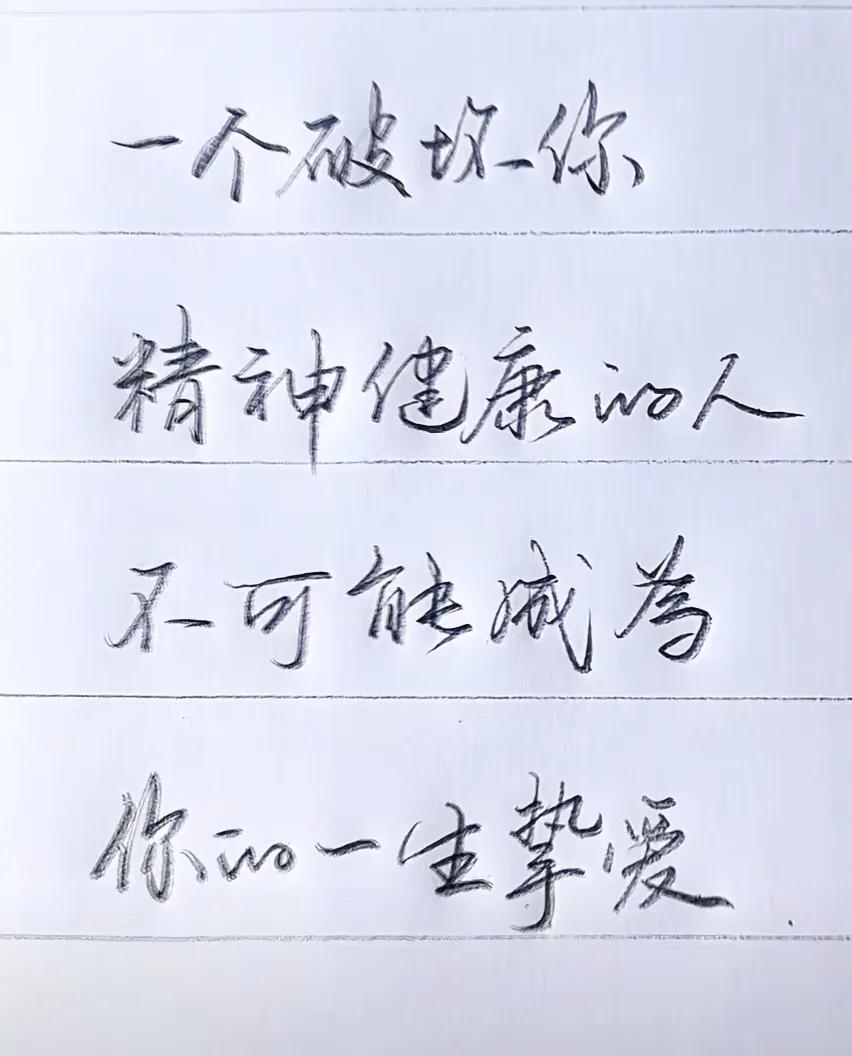 一个破坏你
精神健康的人
不可能成为
你的一生挚爱